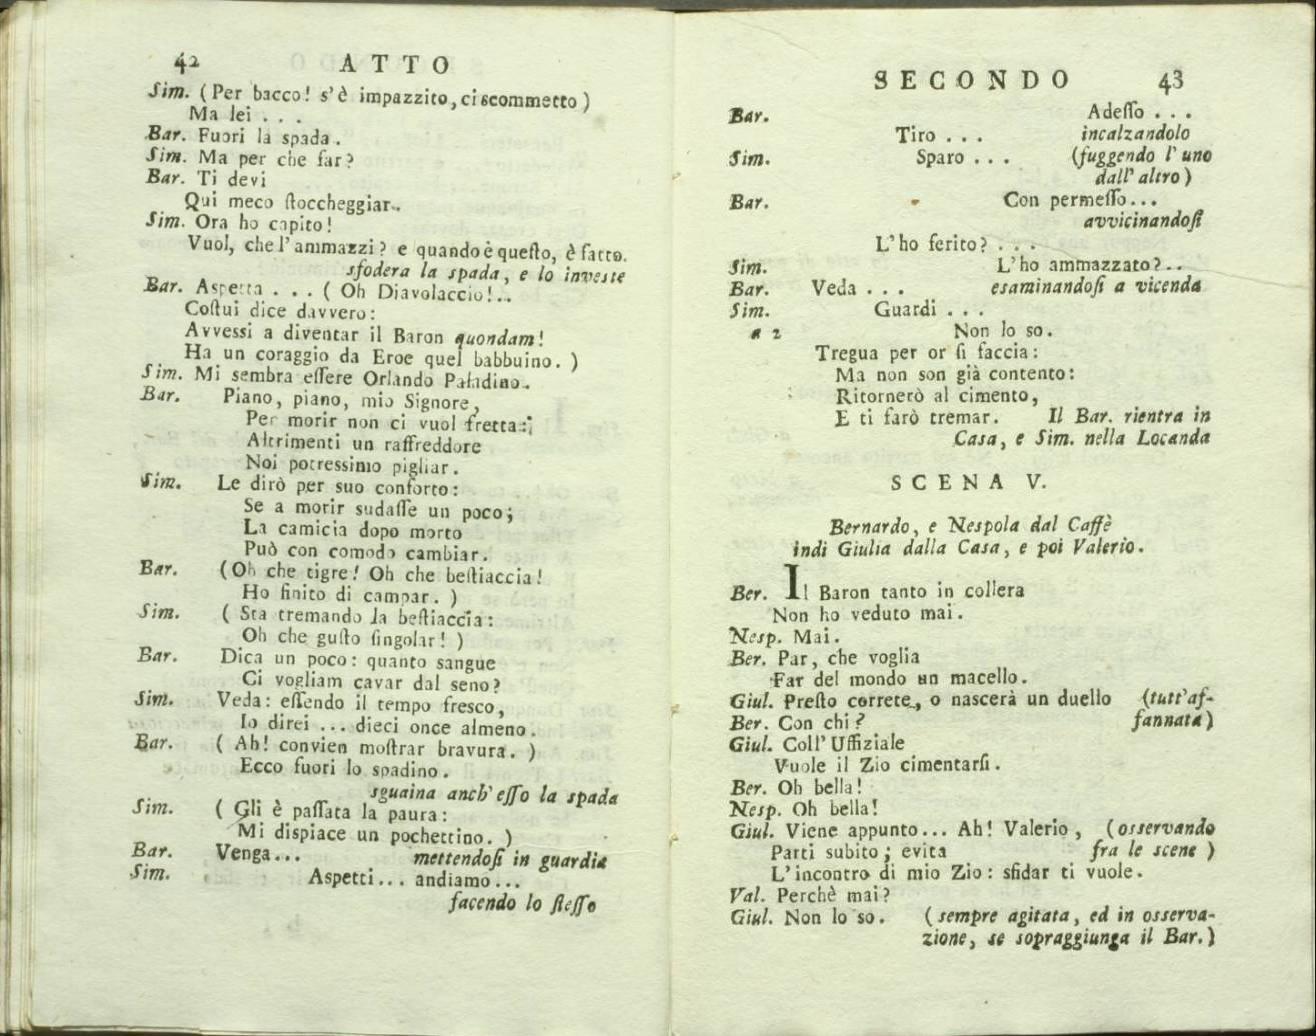 42 ATTO
Sim. (Per bacco! s'è impazzito, ci scommetto)
Ma lei . . .
Bar. Fuori la spada.
Sim. Ma per che far?
Bar. Ti devi
Qui meco ſtoccheggiar.
Sim. Ora ho capito!
Vuol, che l'ammazzi? e quando è queſto, è fatto.
sfodera la spada, e lo investe
Bar. Aspetta . . . ( Oh Diavolaccio!..
Coſtui dice davvero:
Avvessi a diventar il Baron quondam!
Ha un coraggio da Eroe quel babbuino. )
Sim. Mi sembra eſſere Orlando Paladino.
Bar. Piano, piano, mio Signore,
Per morir non ci vuol fretta:
Altrimenti un raffreddore
Noi potressimo pigliar.
Sim. Le dirò per suo conforto:
Se a morir sudaſſe un poco;
La camicia dopo morto
Può con comodo cambiar.
Bar. (Oh che tigre! Oh che beſtiaccia!
Ho finito di campar. )
Sim. ( Sta tremando la beſtiaccia:
Oh che guſto ſingolar! )
Bar. Dica un poco: quanto sangue
Ci vogliam cavar dal seno?
Sim. Veda: eſſendo il tempo fresco,
Io direi ... dieci once almeno.
Bar. ( Ah! convien moſtrar bravura. )
Ecco fuori lo spadino.
sguaina anch'eſſo la spada
Sim. ( Gli è paſſata la paura:
Mi dispiace un pochettino. )
Bar. Venga... mettendoſi in guardia
Sim. Aspetti... andiamo...
facendo lo ſteſſo
SECONDO 43
Bar. Adeſſo . . .
Tiro . . . incalzandolo
Sim. Sparo . . . (fuggendo l'uno
dall'altro)
Bar. Con permeſſo...
avvicinandoſi
L'ho ferito? . . .
Sim. L'ho ammazzato?..
Bar. Veda . . . esaminandoſi a vicenda
Sim. Guardi . . .
a 2 Non lo so.
Tregua per or ſi faccia:
Ma non son già contento:
Ritornerò al cimento,
E ti farò tremar. Il Bar. rientra in
Casa, e Sim. nella Locanda
SCENA V.
Bernardo, e Nespola dal Caffè
indi Giulia dalla Casa, e poi Valerio.
Ber. Il Baron tanto in collera
Non ho veduto mai.
Nesp. Mai.
Ber. Par, che voglia
Far del mondo un macello.
Giul. Preſto correte, o nascerà un duello (tutt'af-
Ber. Con chi? fannata)
Giul. Coll'Uffiziale
Vuole il Zio cimentarſi.
Ber. Oh bella!
Nesp. Oh bella!
Giul. Viene appunto... Ah! Valerio, (osservando
Parti subito; evita fra le scene )
L'incontro di mio Zio: sfidar ti vuole.
Val. Perchè mai?
Giul. Non lo so. ( sempre agitata, ed in osserva-
zione, se sopraggiunga il Bar.)